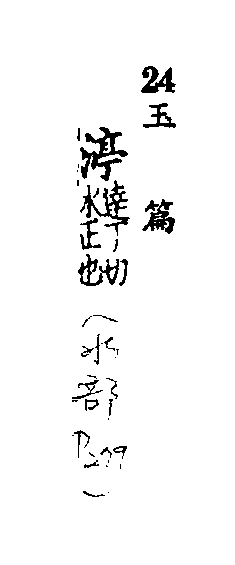 24
玉篇
渟 達丁切
水正也
(水部
P.279)